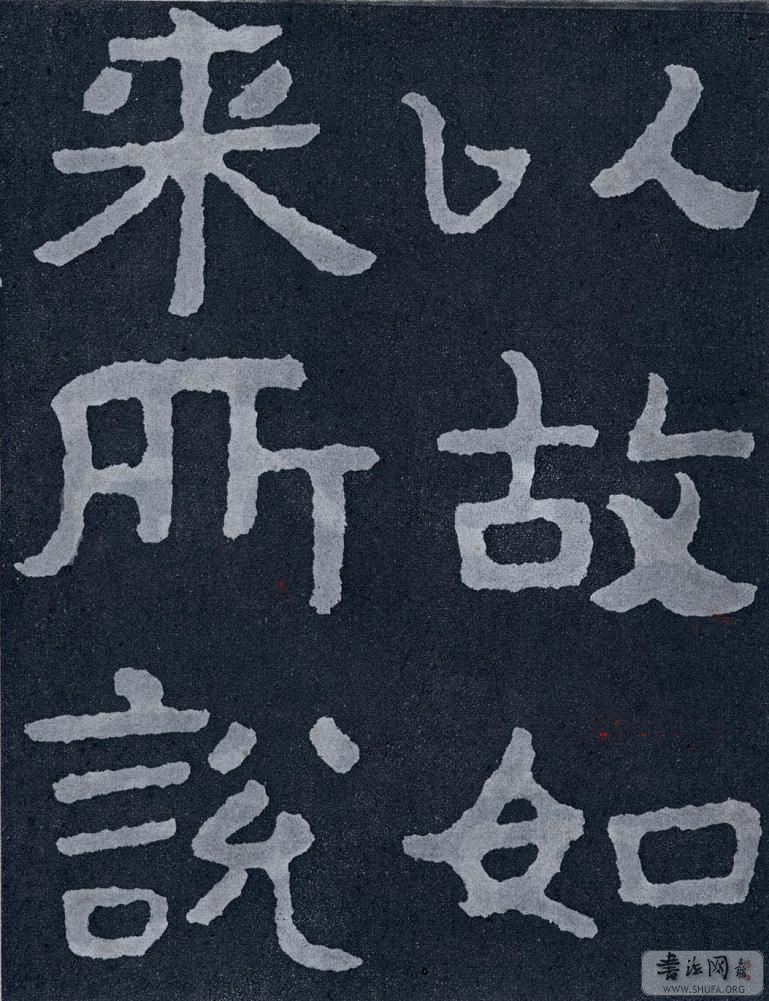 以故如
来所說
書法网
WWW.SHUFA.ORG